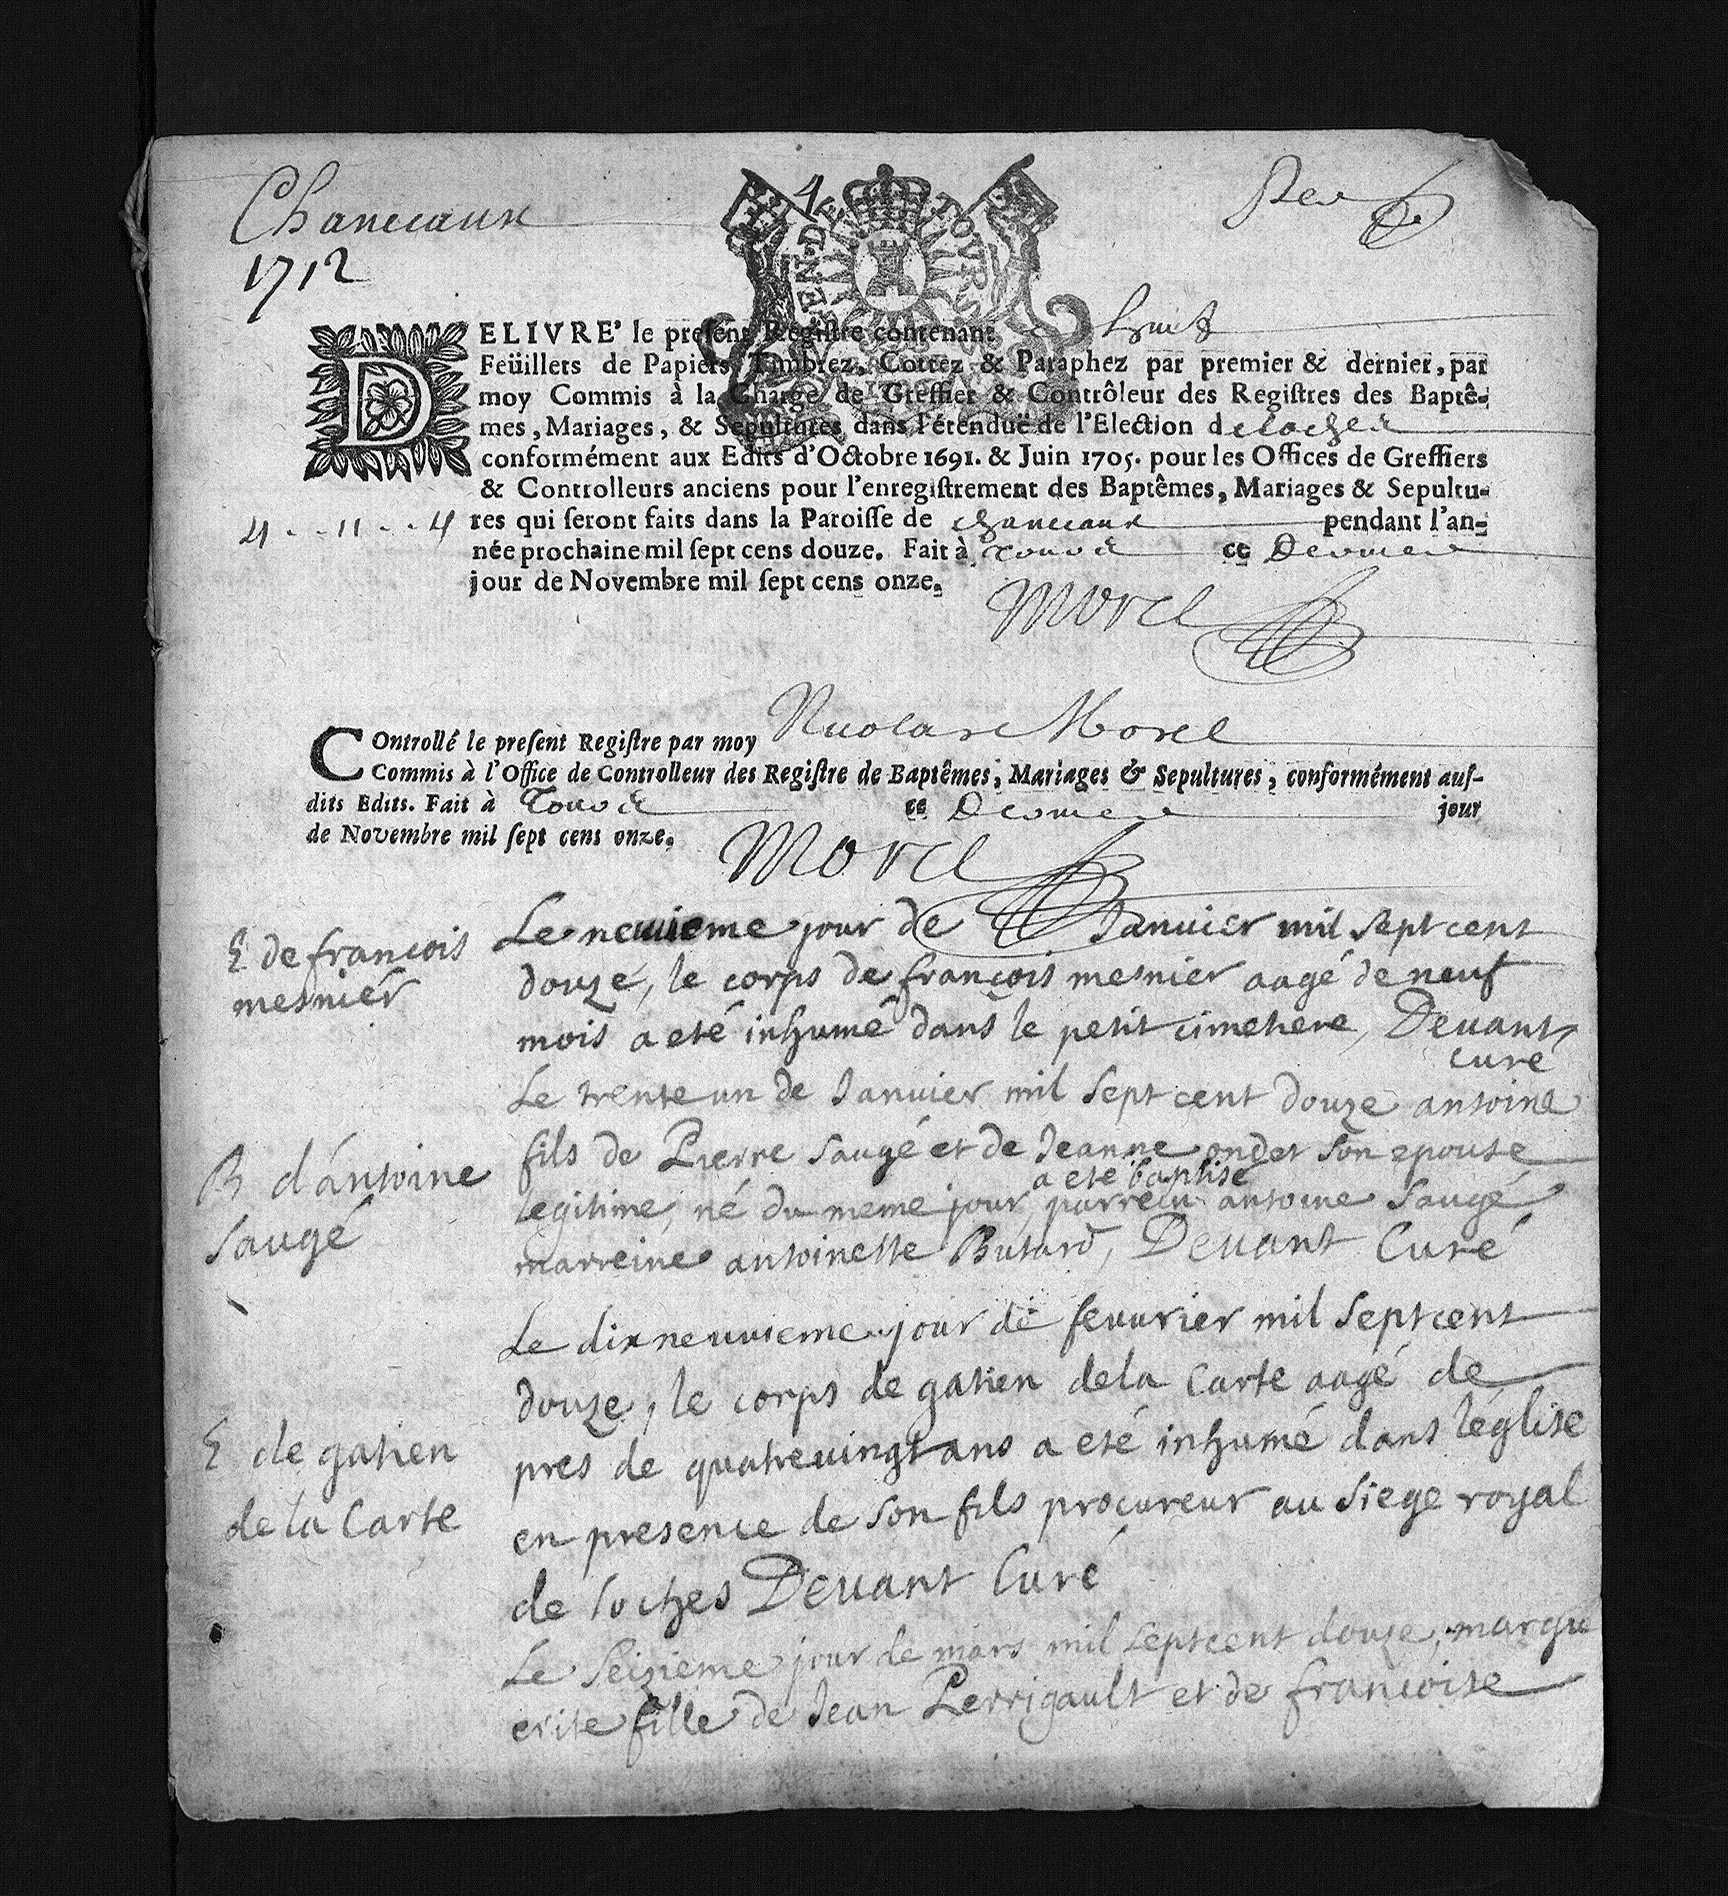 Chanceaux
1712
GEN. DE TOURS
DELIVRE' le preſent Regiſtre contenant huit
Feüillets de Papiers Timbrez, Cottez & Paraphez par premier & dernier, par
moy Commis à la Charge de Greffier & Contrôleur des Regiſtres des Baptê-
mes, Mariages, & Sepultures dans l'étenduë de l'Election de loches
conformément aux Edits d'Octobre 1691. & Juin 1705. pour les Offices de Greffiers
& Controlleurs anciens pour l'enregiſtrement des Baptêmes, Mariages & Sepultu-
4 - - 11 - - 4
res qui ſeront faits dans la Paroiſſe de chanceaux pendant l'an-
née prochaine mil ſept cens douze. Fait à Tours ce
jour de Novembre mil ſept cens onze.
Morel
COntrollé le preſent Regiſtre par moy Nicolas Morel
Commis à l'Office de Controlleur des Regiſtre de Baptêmes, Mariages & Sepultures, conformément auſ-
dits Edits. Fait à Tours ce jour
de Novembre mil ſept cens onze.
Morel
E de francois
mesnier
Le neuuieme jour de Januier mil sept cent
douze, le corps de francois mesnier aagé de neuf
mois a eté inhumé dans le petit cimetiere, Deuant
curé
B d'antoine
saugé
Le trente un de Januier mil sept cent douze antoine
fils de Pierre saugé et de Jeanne ondet son epouse
a eté baptise
legitime, né du meme jour, parrein antoine saugé
marreine antoinette Butard, Deuant Curé
E de gatien
de la Carte
Le dix neuuieme jour de feuurier mil sept cent
douze, le corps de gatien dela Carte aagé de
pres de quatreuingt ans a eté inhumé dans l'église
en presence de son fils procureur au siege royal
de loches Deuant Curé
Le seizieme jour de mars mil sept cent douze, margu
erite fille de Jean Perrigault et de francoise